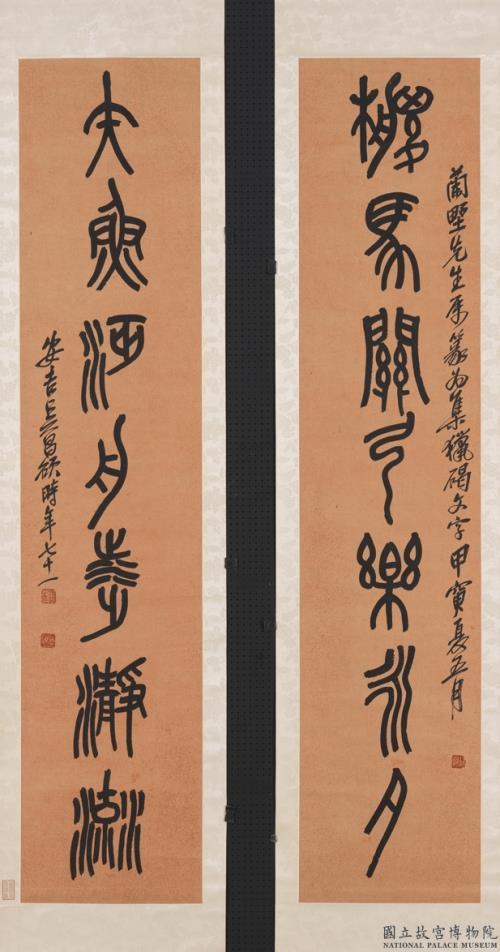 蘭墅先生屬篆為集獵碣文字甲寅夏五月
馬關弓樂永夕
魚舟瀞流
安吉吳昌碩時年七十一
國立故宮博物院
NATIONAL PALACE MUSEUM